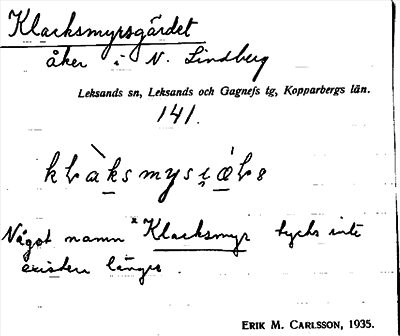 Klacksmyrsgärdet
åker i N. Lindberg
Leksands sn, Leksands och Gagnefs tg, Kopparbergs län.
141.
Något namn *Klacksmyr tycks inte
existera längre.
ERIK M. CARLSSON, 1935.